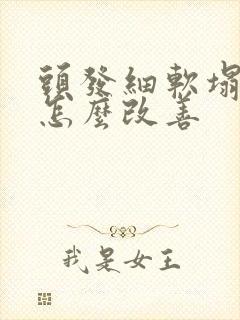 頭發細軟塌
怎麼改善
我是女王